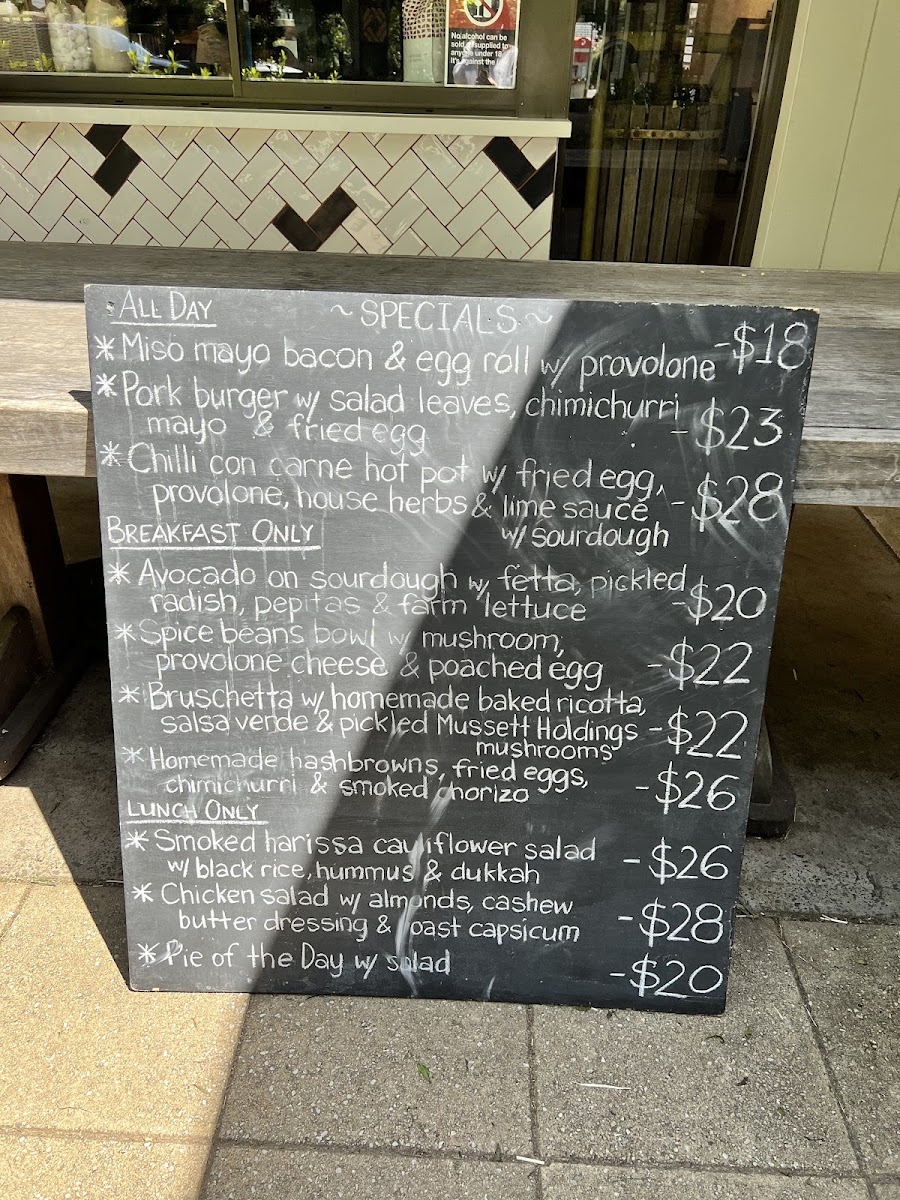 No alcohol can be
sold or supplied to
anyone under 18
it's against the
ALL DAY
~ SPECIALS ~
* Miso mayo bacon & egg roll w/ provolone -$18
* Pork burger w/ salad leaves, chimichurri
mayo & fried egg - $23
* Chilli con carne hot pot w/ fried egg,
provolone, house herbs & lime sauce - $28
w/ sourdough
BREAKFAST ONLY
* Avocado on sourdough w/ fetta, pickled
radish, pepitas & farm lettuce -$20
* Spice beans bowl w/ mushroom,
provolone cheese & poached egg - $22
* Bruschetta w/ homemade baked ricotta,
salsa verde & pickled Mussett Holdings - $22
mushrooms
* Homemade hashbrowns, fried eggs,
chimichurri & smoked chorizo - $26
LUNCH ONLY
* Smoked harissa cauliflower salad
w/ black rice, hummus & dukkah - $26
* Chicken salad w/ almonds, cashew
butter dressing & roast capsicum - $28
* Pie of the Day w/ salad - $20